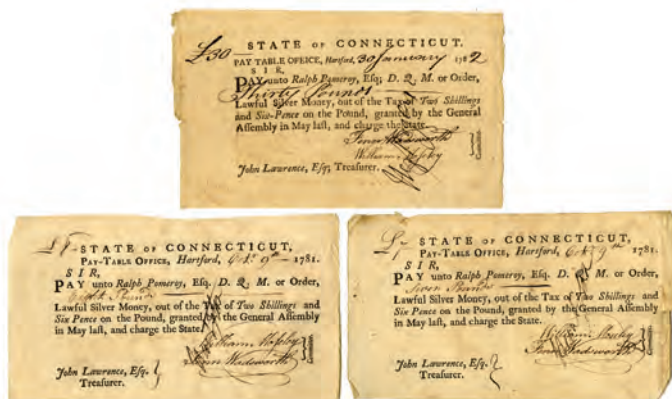 £30 STATE OF CONNECTICUT.
PAY TABLE OFFICE, Hartford, 30 January 1782
SIR,
PAY unto Ralph Pomeroy, Esq; D. Q. M. or Order,
Thirty Pounds
Lawful Silver Money, out of the Tax of Two Shillings
and Six-Pence on the Pound, granted by the General
Assembly in May last, and charge the State.
Fenn Wadsworth
William Mosely
John Lawrence, Esq; Treasurer.
£8 STATE OF CONNECTICUT,
PAY-TABLE OFFICE, Hartford, Octr 9th 1781.
SIR,
PAY unto Ralph Pomeroy, Esq. D. Q. M. or Order,
Eight Pounds
Lawful Silver Money, out of the Tax of Two Shillings and
Six Pence on the Pound, granted by the General Assembly
in May last, and charge the State.
William Mosely
Fenn Wadsworth
John Lawrence, Esq.
Treasurer.
£7 STATE OF CONNECTICUT,
PAY-TABLE OFFICE, Hartford, Octr 9th 1781.
SIR,
PAY unto Ralph Pomeroy, Esq. D. Q. M. or Order,
Seven Pounds
Lawful Silver Money, out of the Tax of Two Shillings and
Six Pence on the Pound, granted by the General Assembly
in May last, and charge the State.
William Mosely
Fenn Wadsworth
John Lawrence, Esq.
Treasurer.